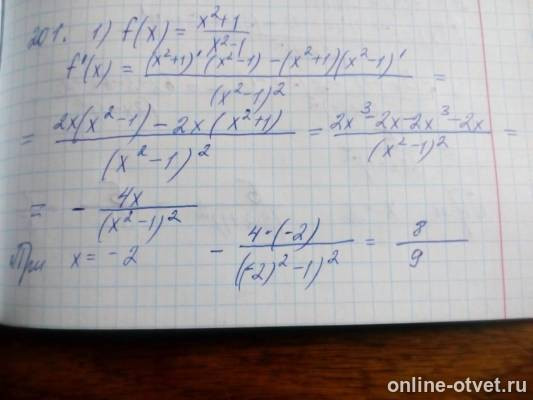 201. 1) f(x) = x²+1 / x²-1
f'(x) = (x²+1)'(x²-1) - (x²+1)(x²-1)' / (x²-1)² =
= 2x(x²-1) - 2x(x²+1) / (x²-1)² = 2x³-2x-2x³-2x / (x²-1)² =
= - 4x / (x²-1)²
При x = -2 - 4·(-2) / ((-2)²-1)² = 8 / 9
online-otvet.ru